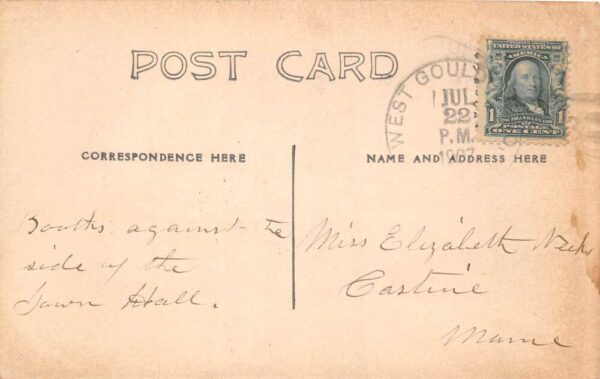 POST CARD
WEST GOULD
JUL
22
P.M.
1907
UNITED STATES OF
AMERICA
1 FRANKLIN 1
POSTAGE
ONE CENT
CORRESPONDENCE HERE
NAME AND ADDRESS HERE
Booths against the
side of the
Town Hall.
Miss Elizabeth
Castine
Maine